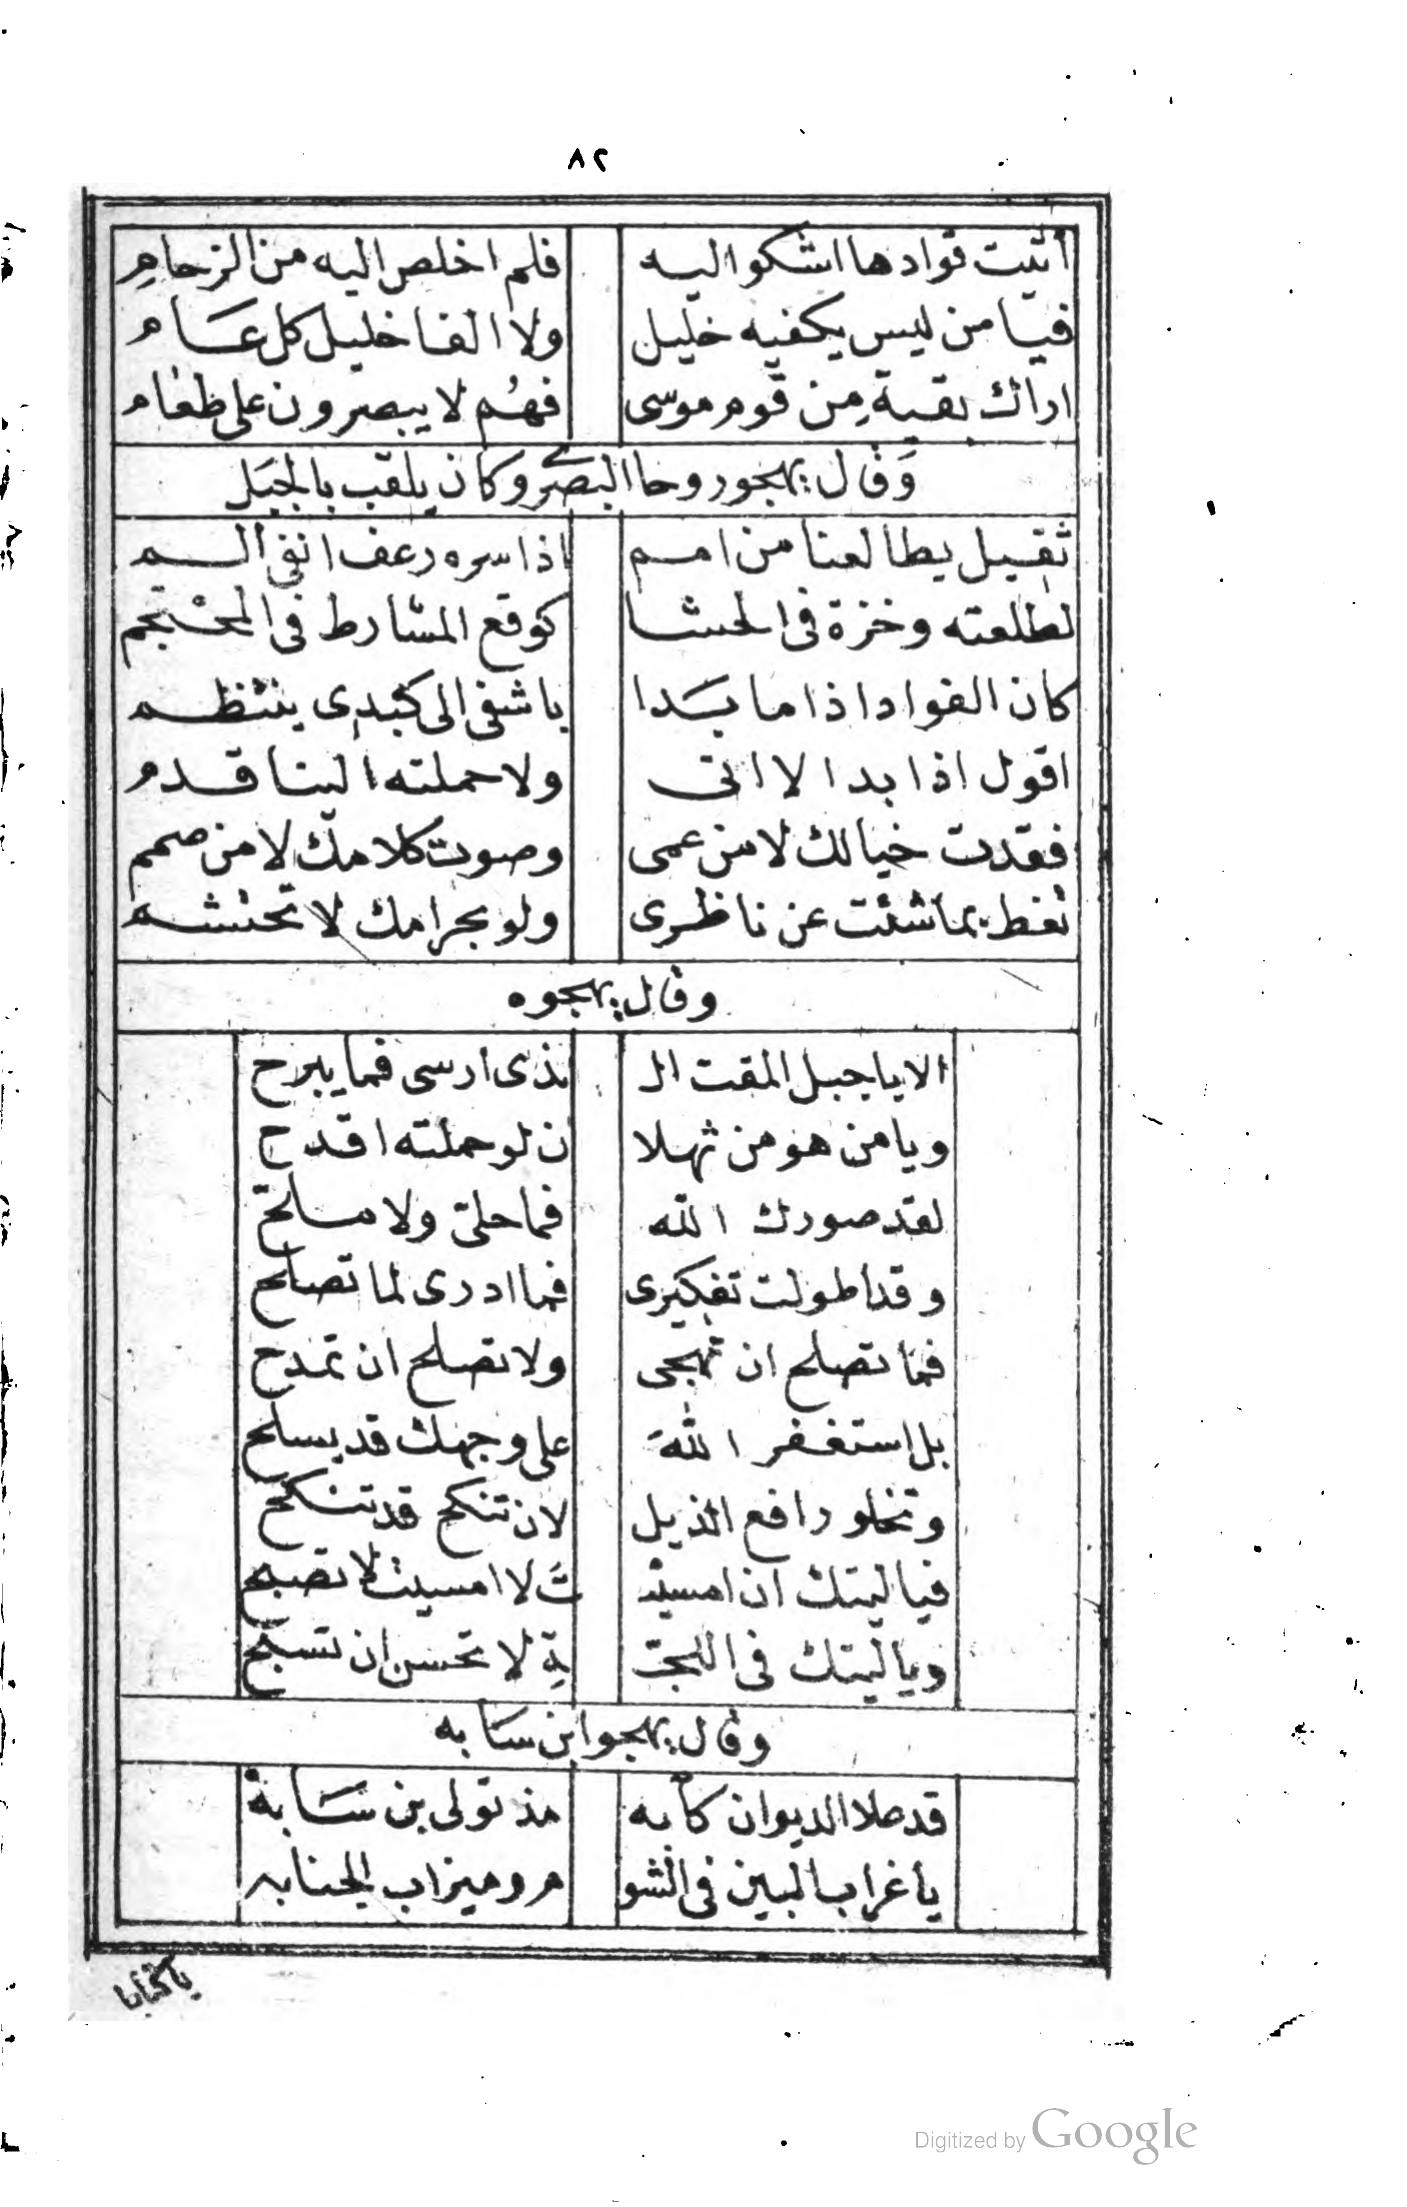 ٨٢
أتيت فوادها اشكو اليه فلم اخلص اليه من الزحام
فيا من ليس يكفيه خليل ولا الفا خليل كل عام
اراك بقية من قوم موسى فهم لا يبصرون على طعام
وقال يهجو روحا البصرى وكان يلقب بالجبل
ثقيل يطالعنا من امم اذا سره رعف انفى ألم
لطلعته وخزة فى الحشا كوقع المشارط فى المحتجم
كان الفواد اذا ما بدا باشفى الى كبدى ينتظم
اقول اذا بدا لا اتى ولا حملته الينا قدم
فقدت خيالك لا من عمى وصوت كلامك لا من صمم
تغط بما شئت عن ناظرى ولو بجرامك لا تحتشم
وقال يهجوه
الا يا جبل المقت ال ذى ارسى فما يبرح
ويا من هو من ثهلا ن لو حملته افدح
لقد صورك الله فما حلى ولا ملح
وقد طولت تفكيرى فما ادرى لما تصلح
فما تصلح ان تهجى ولا تصلح ان تمدح
بل استغفر الله على وجهك قد يسلح
وتخلو رافع الذيل لان تنكح قد تنكح
فيا ليتك ان امسيت ت لا امسيت لا تصبح
ويا ليتك فى اللج ة لا تحسن ان تسبح
وقال يهجو ابن سابه
قد علا الديوان كآبه مذ تولى بن سابه
يا غراب البين فى الشو م وميزاب الجنابه
يا كتابا
Digitized by Google